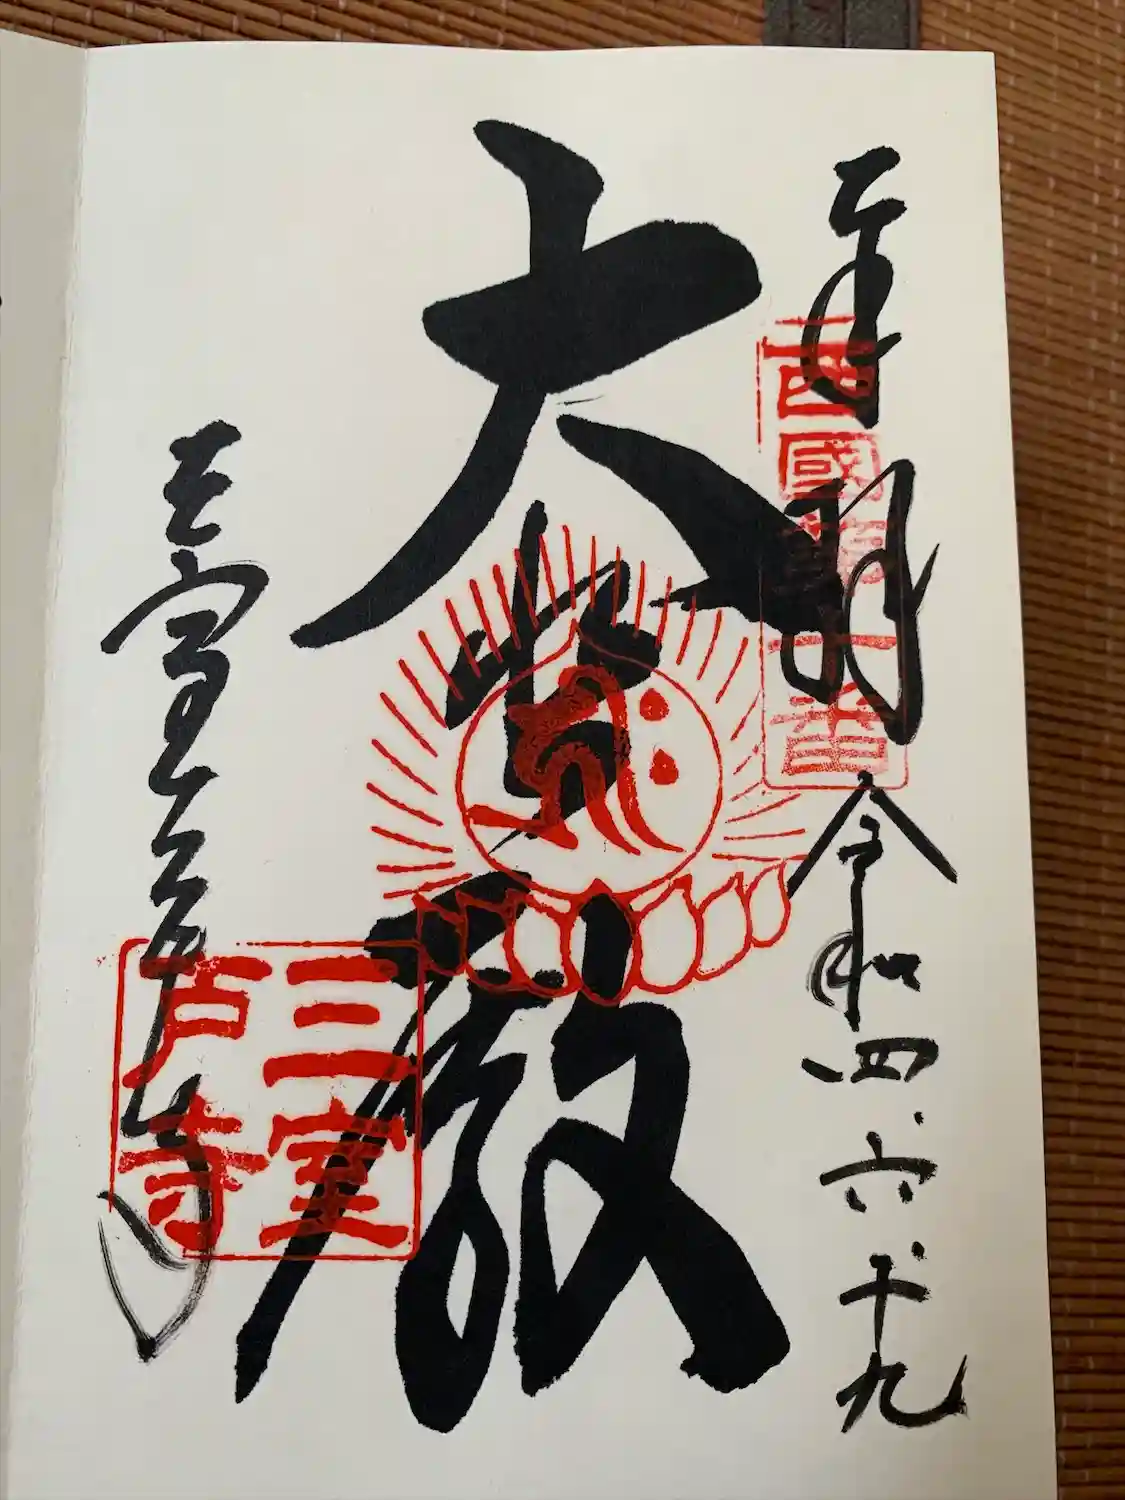 奉拝 令和四、六、十九
西國第十番
大悲殿
三室戸寺
三室戸寺